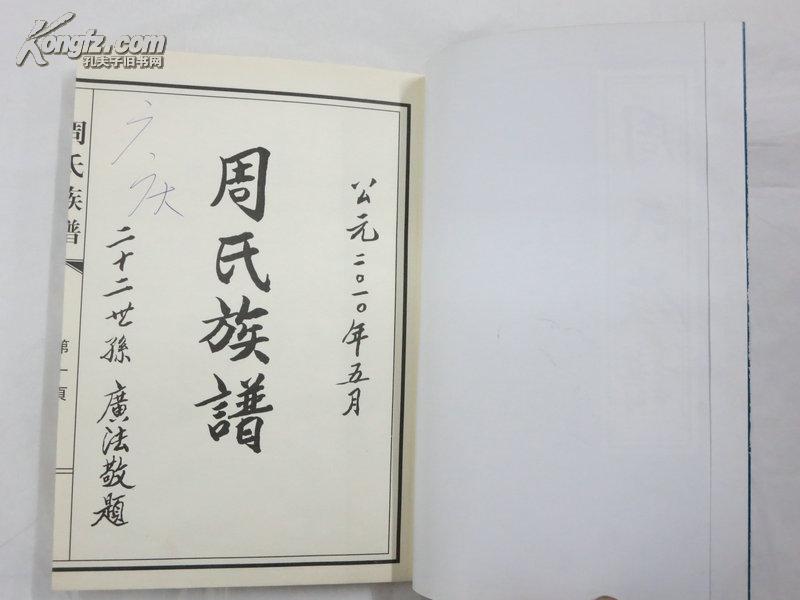 Kongfz.com
孔夫子旧书网
公元二〇一〇年五月
周氏族譜
二十二世孫 廣法敬題
广庆
周氏族譜
第一頁